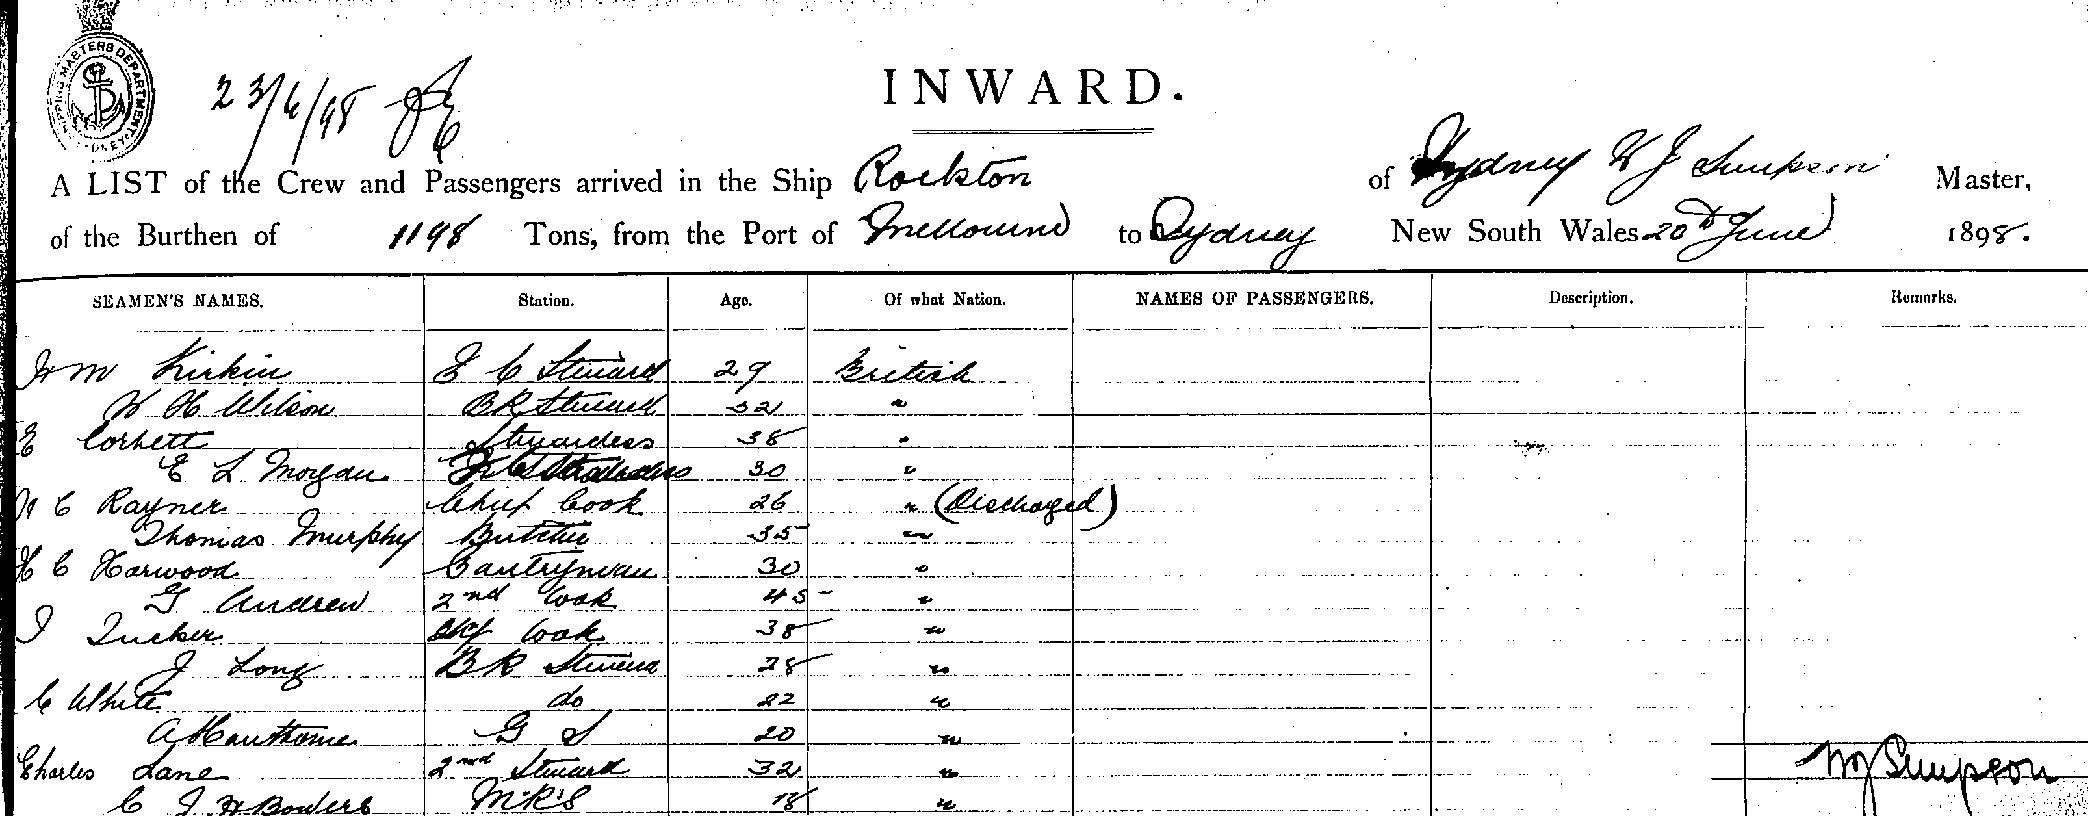 SHIPPING MASTERS DEPARTMENT SYDNEY
23/6/98
INWARD.
A LIST of the Crew and Passengers arrived in the Ship Rockton of Sydney W J Simpson Master,
of the Burthen of 1198 Tons, from the Port of Melbourne to Sydney New South Wales 20th June 1898.
SEAMEN'S NAMES. Station. Age. Of what Nation. NAMES OF PASSENGERS. Description. Remarks.
Wm Kirkin F C Steward 29 British
W H Wilson BR Steward 32 "
E Corbett Stewardess 38 "
E L Morgan 30 "
W C Rayner Chief Cook 26 " (Discharged)
Thomas Murphy Butcher 35 "
H C Harwood Pantryman 30 "
G Andrew 2nd Cook 45 "
J Tucker Cook 38 "
J Long BR Steward 28 "
C White do 22 "
A Hawthorne G S 20 "
Charles Lane 2nd Steward 32 "
WJ Simpson
C J H Bowers M.R.S 18 "